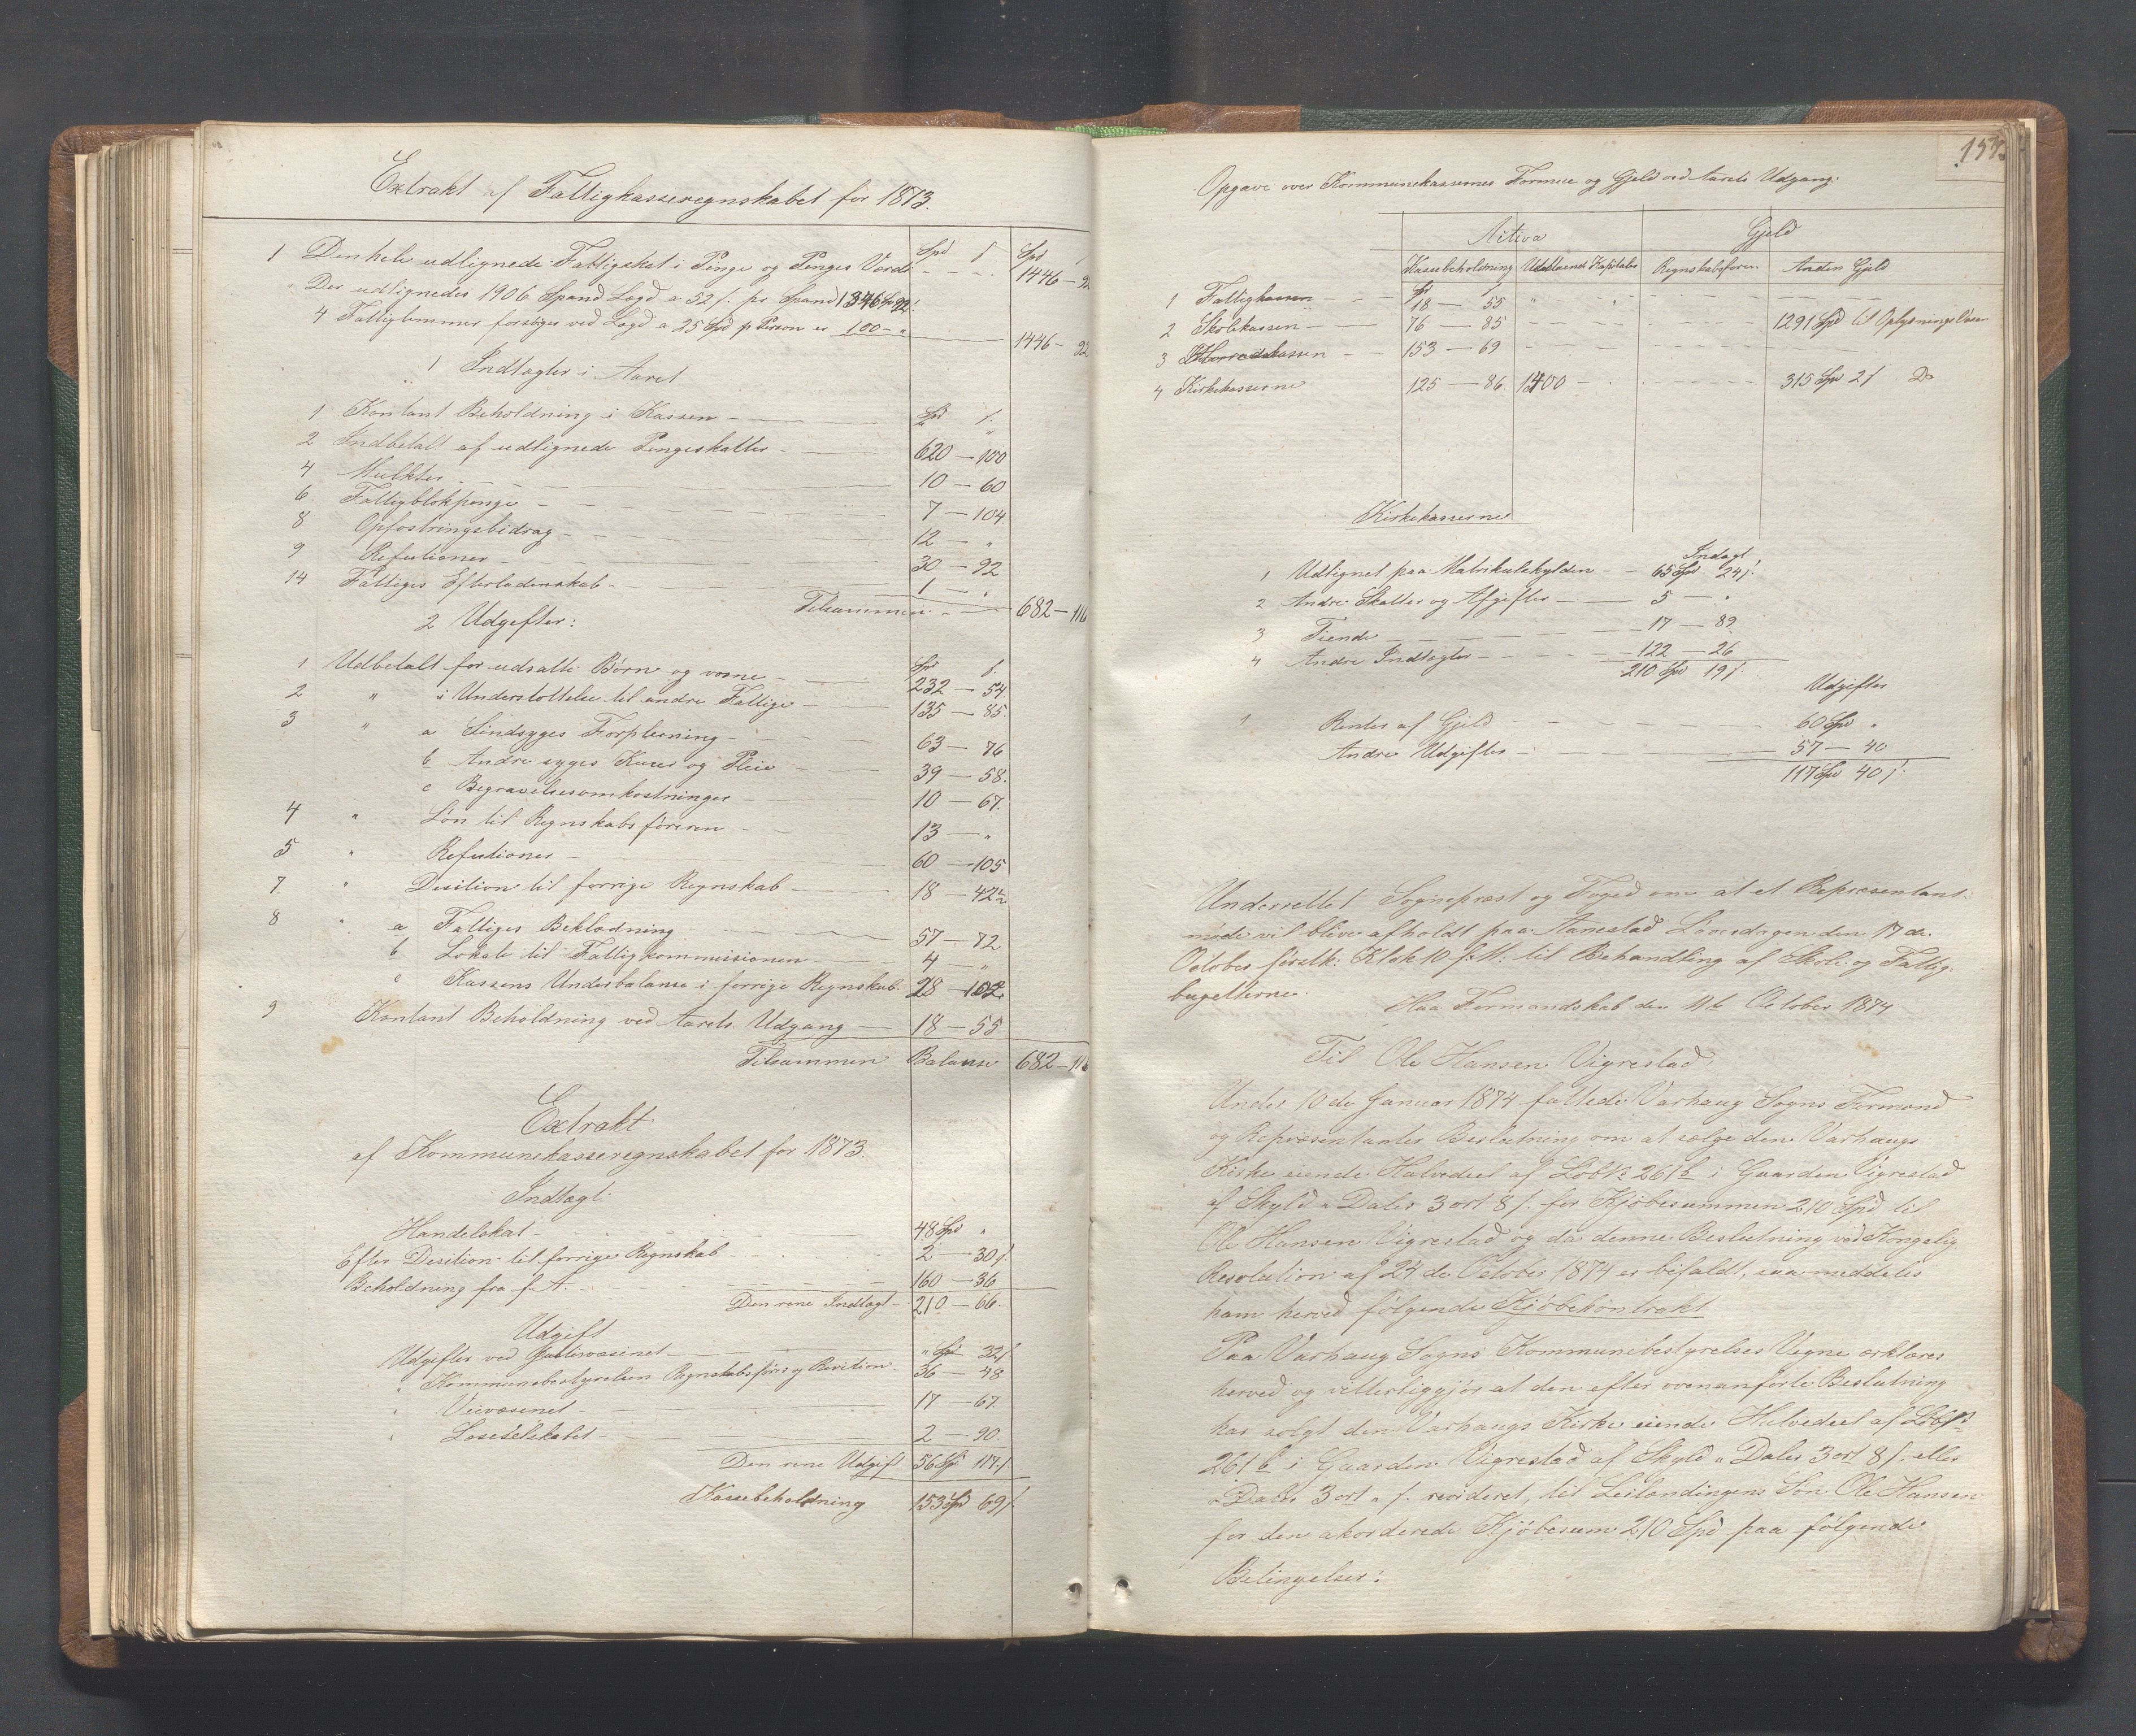 Extrakt af Fattigkasseregnskabet for 1873.
Spd ſ Spd
1 Den hele udlignede Fattigskat i Penge og Penges Værdi - - - 1446 - 92
Der udlignedes 1906 Spand Lægd a 52 ſ. pr Spand 1346 Sp 92
4 Fattiglemmer forsørges ved Lægd a 25 Spd pr Person er 100 - „ 1446 - 92
1 Indtægter i Aaret
1 Kontant Beholdning i Kassen - Spd ſ.
2 Indbetalt af udlignede Pengeskatter - 620 - 100
4 Mulkter - 10 - 60
6 Fattigblokpenge - 7 - 104
8 Opfostringsbidrag - 12 - „
9 Refusioner - 30 - 92
14 Fattiges Efterladenskab - 1 - „
Tilsammen - 682 - 116
2 Udgifter:
1 Udbetalt for udsatte Børn og voxne - Spd 232 - 54
2 „ i Understøttelse til andre Fattige - 135 - 85
3 „ a Sindsyges Forpleining - 63 - 76
b Andre syges Kurer og Pleie - 39 - 58
c Begravelsesomkostninger - 10 - 67
4 „ Løn til Regnskabsføreren - 13 - „
5 „ Refusioner - 60 - 105
7 „ Desition til forrige Regnskab - 18 - 42
8 „ a Fattiges Beklædning - 57 - 72
b Lokale til Fattigkommissionen - 4 - „
c Kassens Underbalanse i forrige Regnskab - 28 - 102
9 Kontant Beholdning ved Aarets Udgang - 18 - 55
Tilsammen Balanse 682 - 116
Extrakt
af Kommunekasseregnskabet for 1873.
Indtægt
Handelskat - 48 Spd „
Efter Desition til forrige Regnskab - 2 - 30 ſ.
Beholdning fra f. A. - 160 - 36
Den rene Indtægt 210 - 66
Udgift
Udgifter ved - „ Spd 32 ſ
„ Kommunebestyrelsen Regnskabsføre og Revition - 36 - 48
„ Veivæsenet - 17 - 67
„ Læseselskabet - 2 - 90
Den rene Udgift 56 Spd 117 ſ
Kassebeholdning 153 Spd 69 ſ
157.
Opgave over Kommunekassernes Formue og Gjeld ved Aarets Udgang.
Activa Gjeld
Kassebeholdning Udestaaende Kapitaler Regnskabsføren Anden Gjeld
1 Fattigkassen - 18 - 55
2 Skolekassen - 76 - 85 - 1291 Spd til Oplysningsvæsen
3 Herredskassen - 153 - 69
4 Kirkekasserne 125 - 86 1400 - 315 Spd 2 ſ
Kirkekasserne
Indtægt
1 Udlignet paa Matrikulskylden - 65 Spd 24 ſ.
2 Andre Skatter og Afgifter - 5 - „
3 Tiende - 17 - 89
4 Andre Indtægter - 122 - 26
210 Spd 19 ſ.
Udgifter
1 Renter af Gjeld - 60 Spd „
Andre Udgifter - 57 - 40
117 Spd 40 ſ.
Underrettet Sognepræst og Foged om at et Repræsentant-
møde vil blive afholdt paa Aanestad Løverdagen den 17 de
October førstk: Klok 10 f.M. til Behandling af Skole og Fattig-
bugetterne.
Haa Formandskab den 11te October 1874
Til Ole Hansen Vigrestad
Under 10 de Januar 1874 fattede Varhaug Sogns Formænd
og Repræsentanter Beslutning om at sælge den Varhaugs
Kirke eiende Halvedeel af Løb No 261 b i Gaarden Vigrestad
af Skyld „ Daler 3 ort 8 ſ. for Kjøbesummen 210 Spd til
Ole Hansen Vigrestad og da denne Beslutning ved Kongelig
Resolution af 24 de October 1874 er bifaldt, saa meddeles
ham herved følgende Kjøbekontrakt
Paa Varhaug Sogns Kommunebestyrelses Vegne erklæres
herved og vitterliggjør at den efter ovenanførte Beslutning
har solgt den Varhaugs Kirke eiende Halvedeel af Løb No
261 b i Gaarden Vigrestad af Skyld „ Daler 3 ort 8 ſ. eller
„ Daler 3 ort „ ſ. revideret, til Leilændingens Søn Ole Hansen
for den akorderede Kjøbesum 210 Spd paa følgende
Betingelser: